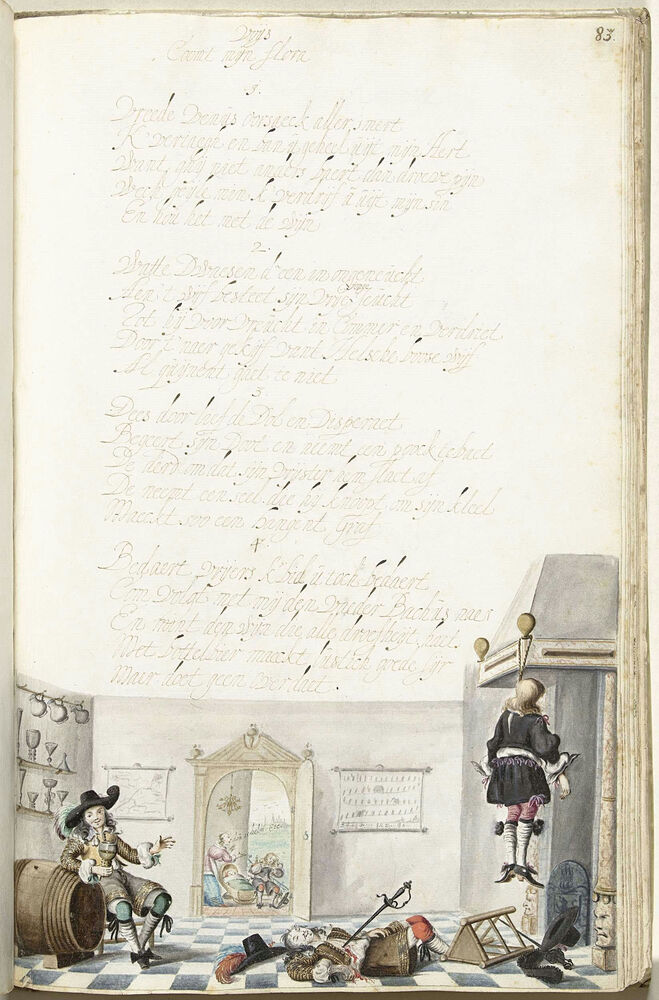 83.
Voijs
Coomt mijn flora
1
Wreede Venus oorsaeck aller smert
K en van geheel uijt mijn Hert
Want ghij niet anders baert dan droeve pijn
Wech geijle min k verdrijf u uijt mijn sin
En hou het met de wijn
2
d een in ongeneucht
Aen t wijf besteet sijn vrije jeucht
Tot hij door in Commer en verdriet
Door t naer gekijf vant Helsche boose wijf
te niet
3
Dees door liefde Dol en Disperaet
Begeert sijn Doot en neemt een poock te baet
De herd omdat sijn vrijster hem slaet af
De neemt een seel die hij knoopt om sijn keel
Maeckt soo een hangent Graf
4
Bedaert vrijers k bid u toch bedaert
Com volgt met mij den vader Bachus naer
En mint den wijn die alle droefheijt
Met bottelbier maeckt lustich goede sijr
Maer doet geen overdaet.